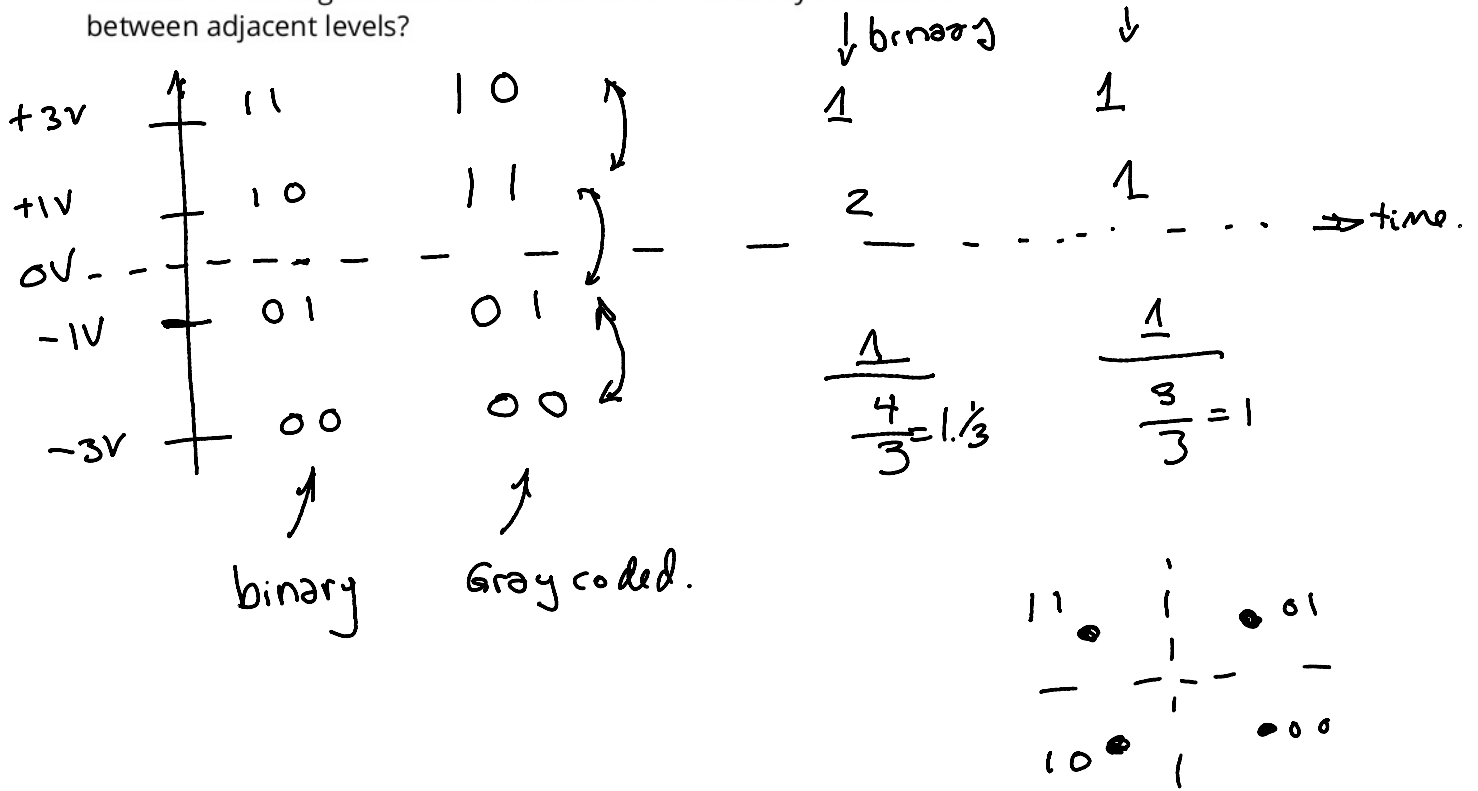 between adjacent levels?
↓ binary ↓
+3V 11 10 1 1
+1V 10 11 2 1
⇒ time.
0V
-1V 01 01 1 1
-3V 00 00 4/3 = 1.1/3 3/3 = 1
binary Gray coded.
11 01
10 00